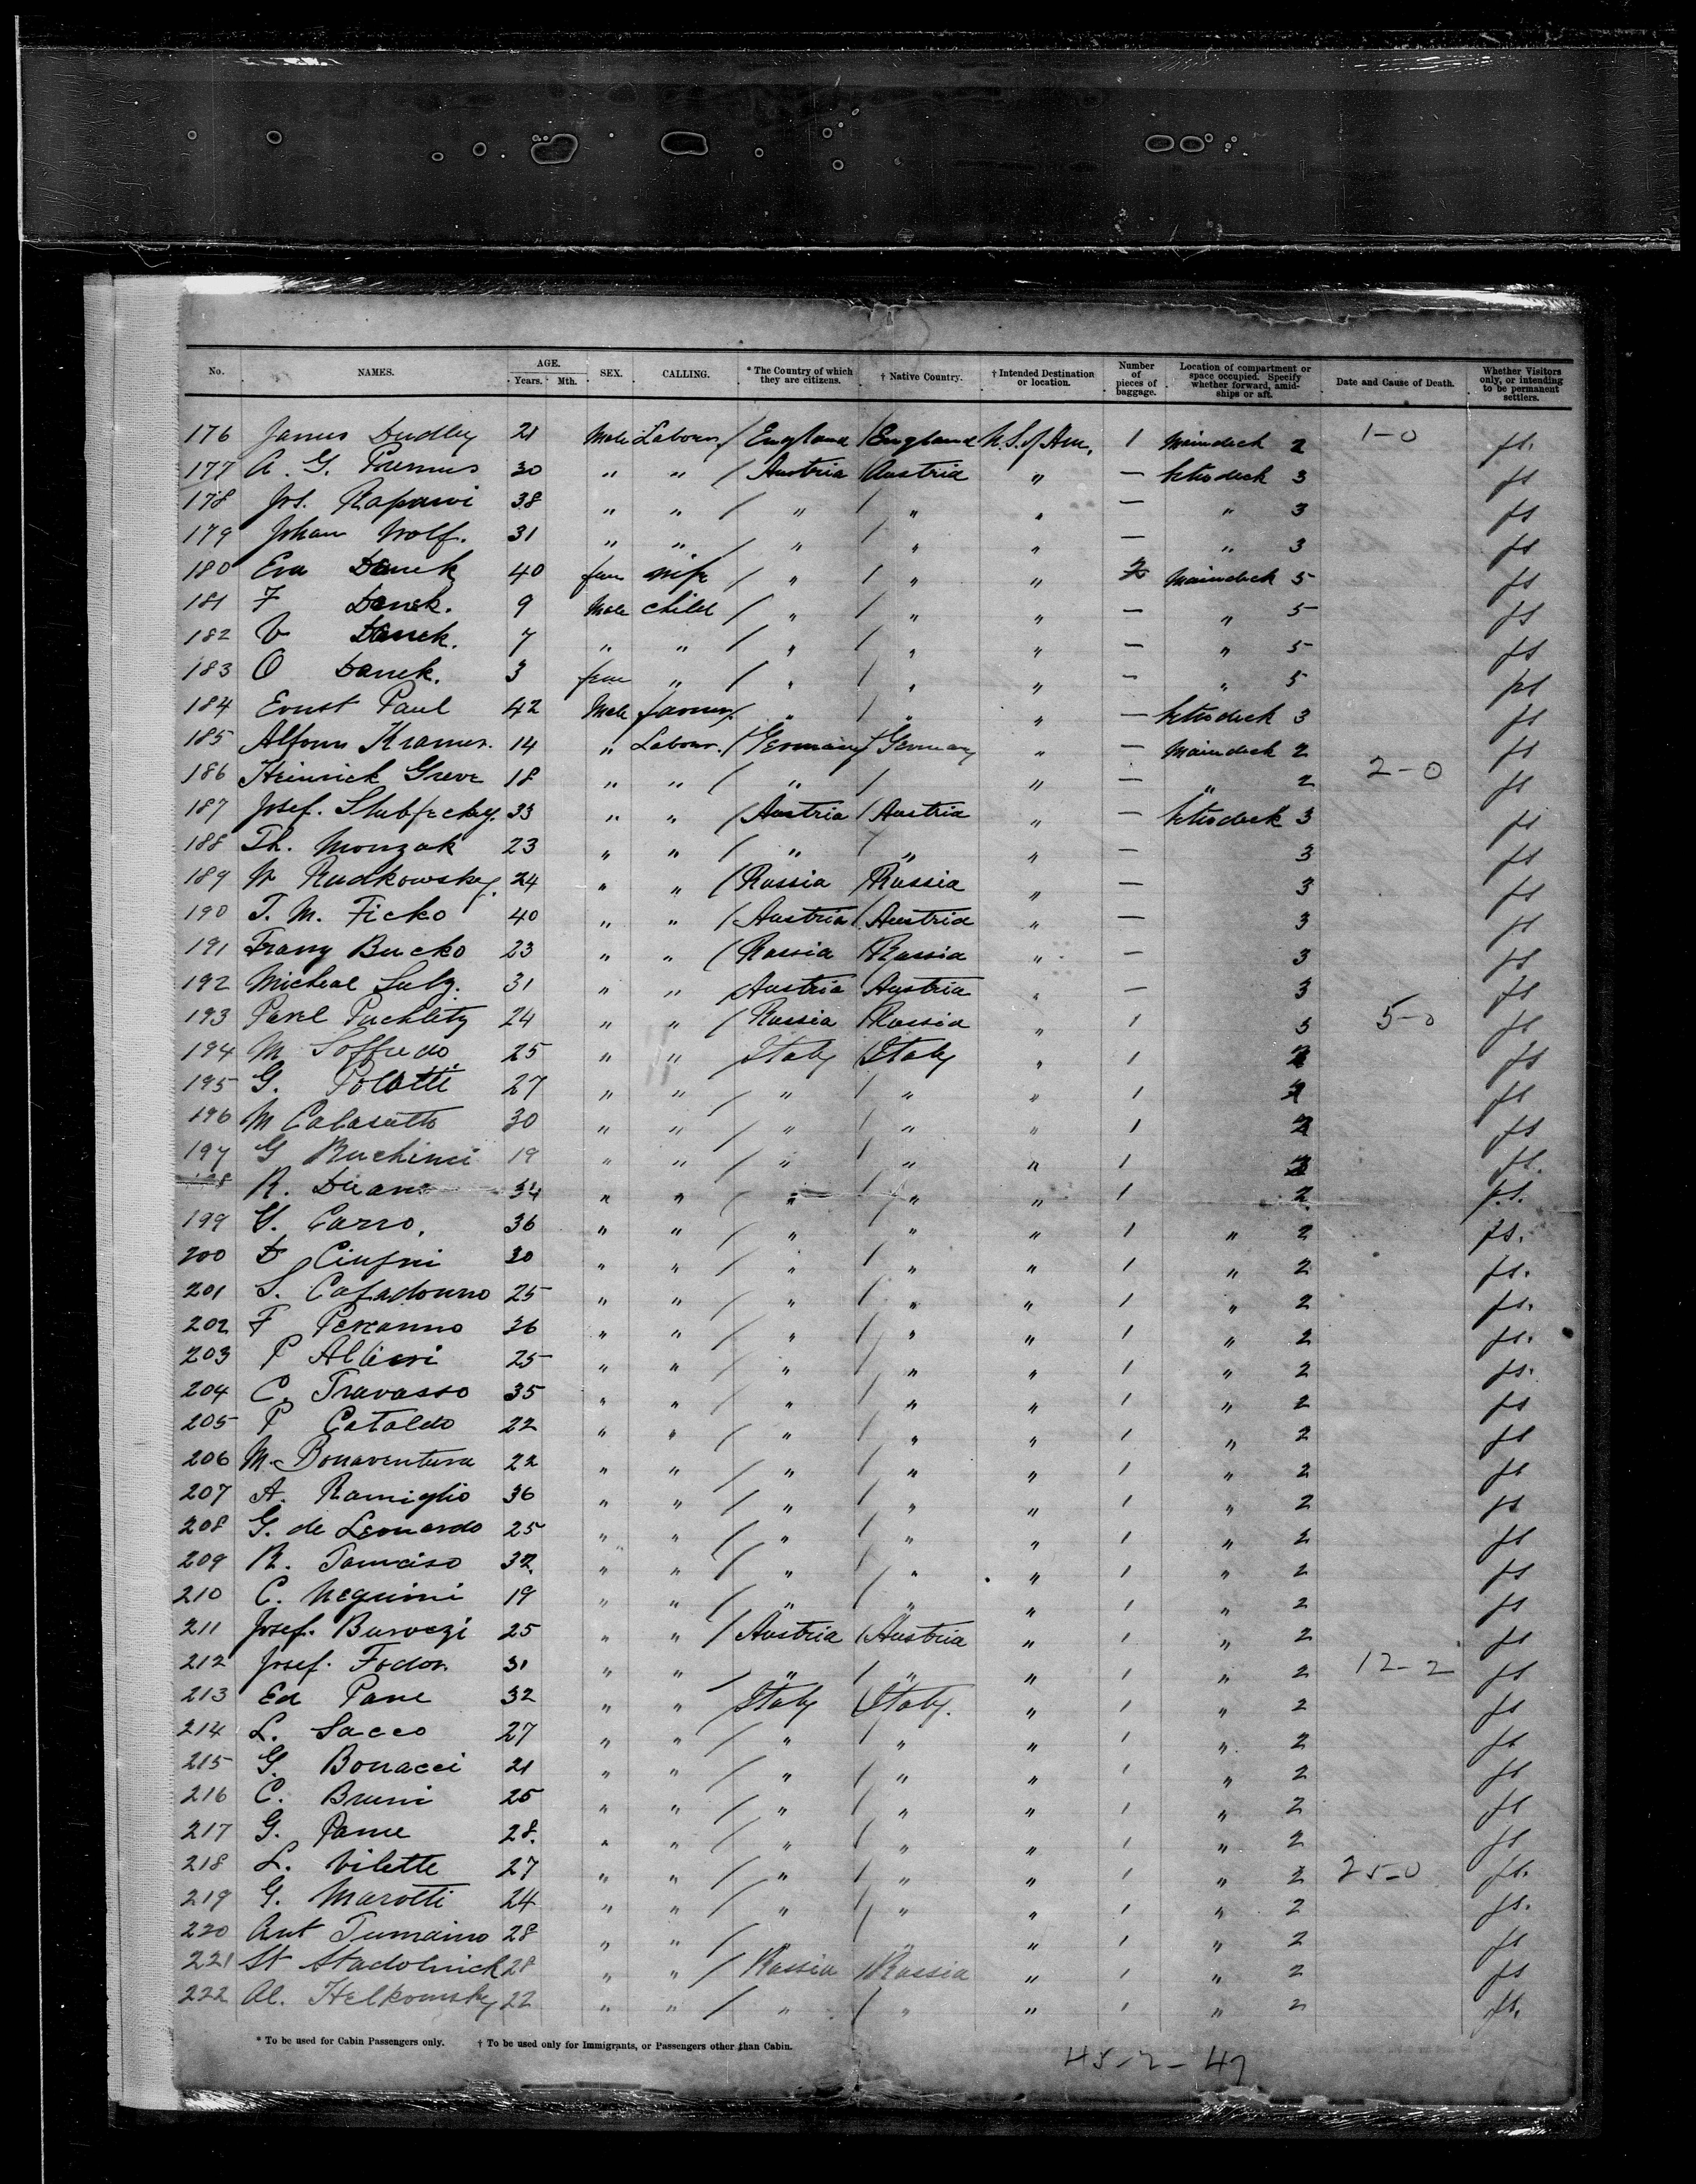 No. NAMES. AGE. Years. Mth. SEX. CALLING. * The Country of which they are citizens. † Native Country. † Intended Destination or location. Number of pieces of baggage. Location of compartment or space occupied. Specify whether forward, amidships or aft. Date and Cause of Death. Whether Visitors only, or intending to be permanent settlers.
176 James Dudley 21 Male Labour / England / England U.S. of Am. 1 Maindeck 2 1-0
177 A. G. 30 " " / Austria Austria " — 3
178 Jos. 38 " " / " / " " — " 3
179 Johan Wolf. 31 " " / " / " " — " 3
180 Eva Danek 40 fem wife / " / " " Maindeck 5
181 F Danek. 9 Male child / " / " " — " 5
182 V Danek. 7 " " / " / " " — " 5
183 O Danek. 3 fem " / " / " " — " 5
184 Ernst Paul 42 Male farmer / " / " " — 3
185 Alfons Kramer. 14 " Labour. / Germany / Germany " — Maindeck 2
186 Heinrich Greve 18 " " / " / " — " 2 2-0
187 Josef. 33 " " / Austria / Austria " — 3
188 Th. Monzak 23 " " / " / " " — 3
189 Rudkowsky. 24 " " / Russia / Russia " — 3
190 T. M. Ficko 40 " " / Austria / Austria " — 3
191 Franz Bucko 23 " " / Russia / Russia " — 3
192 Micheal Sulz. 31 " " / Austria / Austria " — 3
193 24 " " / Russia / Russia " 1 3 5-0
194 M Soffredo 25 " " Italy / Italy " 1 2
195 G. Polotti 27 " " / " / " " 1 2
196 M 30 " " / " / " " 1 2
197 G 19 " " / " / " " 1 2
198 R. 34 " " / " / " " 1 2
199 Carro. 36 " " / " / " " 1 " 2
200 D 30 " " / " / " " 1 " 2
201 S. 25 " " / " / " " 1 " 2
202 F 36 " " / " / " " 1 " 2
203 P Altieri 25 " " / " / " " 1 " 2
204 C. Travasso 35 " " / " / " " 1 " 2
205 P Cataldo 22 " " / " / " " 1 " 2
206 M. Bonaventura 22 " " / " / " " 1 " 2
207 A. Ramiglio 36 " " / " / " " 1 " 2
208 G. de Leonardo 25 " " / " / " " 1 " 2
209 R. 32 " " / " / " " 1 " 2
210 C. 19 " " / " / " " 1 " 2
211 Josef. Buroczi 25 " " / Austria / Austria " 1 " 2
212 Josef. Fodor. 31 " " / " / " " 1 " 2 12-2
213 Ed Pane 32 " " / Italy / Italy. " 1 " 2
214 L. Sacco 27 " " / " / " " 1 " 2
215 G. Bonacci 21 " " / " / " " 1 " 2
216 C. Bruni 25 " " / " / " " 1 " 2
217 G. 28. " " / " / " " 1 " 2
218 L. Vilette 27 " " / " / " " 1 " 2 25-0
219 G. Marotti 24 " " / " / " " 1 " 2
220 Ant Tumaino 28 " " / " / " " 1 " 2
221 St Stadolnick 28 " " / Russia / Russia " 1 " 2
222 Al. Helkowsky 22 " " / " / " " 1 " 2
* To be used for Cabin Passengers only. † To be used only for Immigrants, or Passengers other than Cabin.
45-2-47